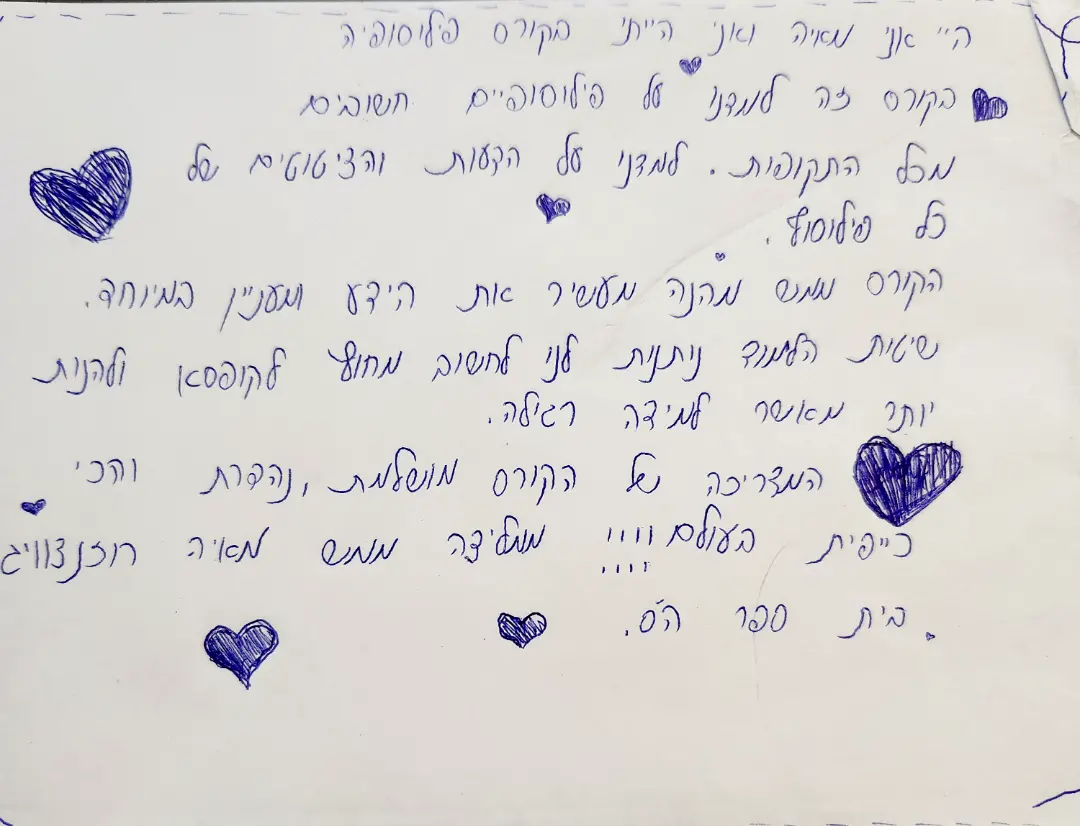 היי אני מאיה ואני הייתי בקורס פילוסופיה
בקורס זה למדנו על פילוסופיים חשובים
מכל התקופות. למדנו על הקעות והציטוטים של
כל פילוסוף.
הקורס ממש מהנה מעשיר את הידע ומעניין במיוחד.
שיטת הלמוד ניתנית לנו לחשוב מחוץ לקופסא ולהנית
יותר מאשר למידה רגילה.
המדריכה של הקורס מושלמת, נהדרת והכי
כייפית בעולם!!!! ממליצה ממש מאיה רוזנצוויג
בית ספר הס.